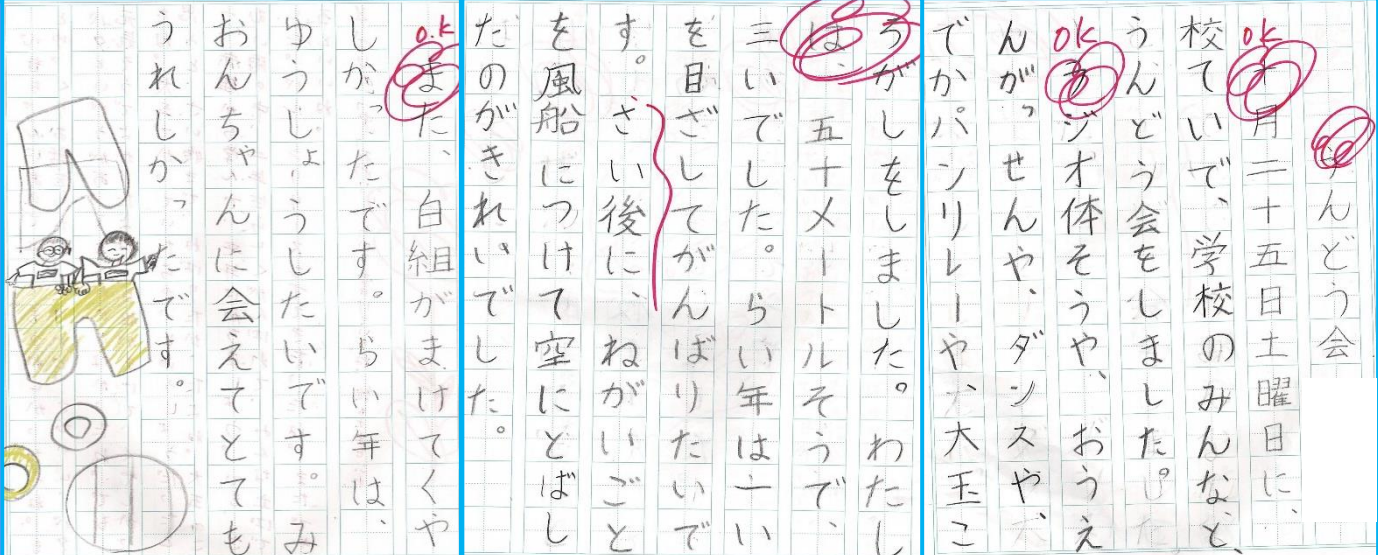 うんどう会
OK
十月二十五日土曜日に、
校ていで、学校のみんなと、
うんどう会をしました。
OK
ラジオ体そうや、おうえ
んがっせんや、ダンスや、
でかパンリレーや、大玉こ
ろがしをしました。わたし
は、五十メートルそうで、
三いでした。らい年は一い
を目ざしてがんばりたいで
す。さい後に、ねがいごと
を風船につけて空にとばし
たのがきれいでした。
O.K
また、白組がまけてくや
しかったです。らい年は、
ゆうしょうしたいです。み
おんちゃんに会えてとても
うれしかったです。